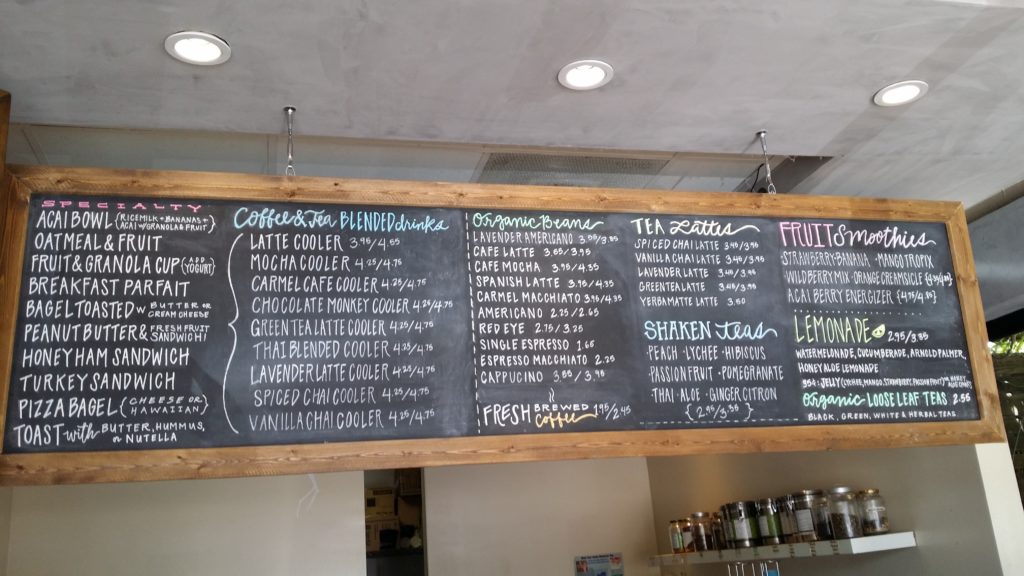 SPECIALTY
ACAI BOWL (RICEMILK + BANANAS + ACAI W/ GRANOLA & FRUIT)
OATMEAL & FRUIT
FRUIT & GRANOLA CUP (ADD YOGURT)
BREAKFAST PARFAIT
BAGEL TOASTED W BUTTER OR CREAM CHEESE
PEANUT BUTTER & FRESH FRUIT SANDWICH!
HONEY HAM SANDWICH
TURKEY SANDWICH
PIZZA BAGEL (CHEESE OR HAWAIIAN)
TOAST with BUTTER, HUMMUS, or NUTELLA
Coffee & Tea BLENDED drinks
LATTE COOLER 3.95/4.55
MOCHA COOLER 4.25/4.75
CARMEL CAFE COOLER 4.25/4.75
CHOCOLATE MONKEY COOLER 4.25/4.75
GREEN TEA LATTE COOLER 4.25/4.75
THAI BLENDED COOLER 4.25/4.75
LAVENDER LATTE COOLER 4.25/4.75
SPICED CHAI COOLER 4.25/4.75
VANILLA CHAI COOLER 4.25/4.75
Organic Beans
LAVENDER AMERICANO
CAFE LATTE 3.65/3.95
CAFE MOCHA 3.95/4.35
SPANISH LATTE 3.95/4.35
CARMEL MACCHIATO 3.95/4.35
AMERICANO 2.25/2.65
RED EYE 2.75/3.25
SINGLE ESPRESSO 1.65
ESPRESSO MACCHIATO 2.25
CAPPUCINO 3.55/3.95
FRESH BREWED Coffee 1.95/2.45
TEA Lattes
SPICED CHAI LATTE 3.45/3.95
VANILLA CHAI LATTE 3.45/3.95
LAVENDER LATTE 3.45/3.95
GREEN TEA LATTE 3.45/3.95
YERBA MATTE LATTE 3.50
SHAKEN teas
PEACH · LYCHEE · HIBISCUS
· PASSION FRUIT · POMEGRANATE
THAI · ALOE · GINGER CITRON
{2.95/3.55}
FRUIT Smoothies
STRAWBERRY BANANA · MANGO TROPIX
WILDBERRY MIX · ORANGE CREAMSICLE
ACAI BERRY ENERGIZER (4.95/4.95)
LEMONADE 2.95/3.55
WATERMELONADE, CUCUMBERADE, ARNOLD PALMER,
HONEY ALOE LEMONADE
JELLY (LYCHEE, MANGO, STRAWBERRY, PASSION FRUIT)
Organic LOOSE LEAF TEAS 2.55
BLACK, GREEN, WHITE & HERBAL TEAS